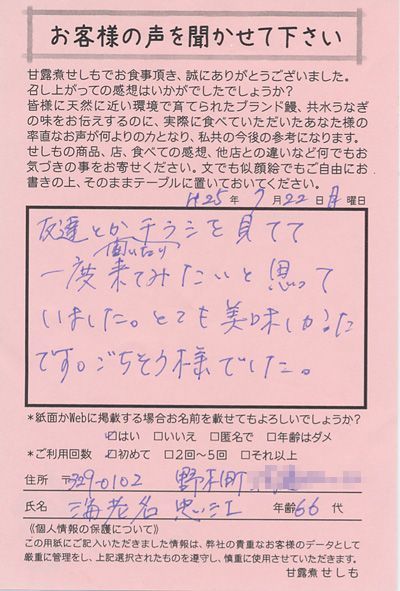 お客様の声を聞かせて下さい
甘露煮せしもでお食事頂き、誠にありがとうございました。
召し上がっての感想はいかがでしたでしょうか?
皆様に天然に近い環境で育てられたブランド鰻、共水うなぎ
の味をお伝えするのに、実際に食べていただいたあなた様の
率直なお声が何よりの力となり、私共の今後の参考になります。
せしもの商品、店、食べての感想、他店との違いなど何でもお
気づきの事をお寄せください。文でも似顔絵でもご自由にお
書きの上、そのままテーブルに置いておいてください。
H25年 7月22日 月曜日
友達とかチラシを見てて
聞いたり
一度来てみたいと思って
いました。とても美味しかった
です。ごちそう様でした。
*紙面かWebに掲載する場合お名前を載せてもよろしいでしょうか?
☑はい □いいえ □匿名で □年齢はダメ
*ご利用回数 ☑初めて □2回~5回 □それ以上
住所 〒329-0102 野木町
氏名 海老名 忠江 年齢66代
《個人情報の保護について》
この用紙にご記入いただきました情報は、弊社の貴重なお客様のデータとして
厳重に管理をし、上記選択されたものを遵守し、慎重に使用させていただきます。
甘露煮せしも